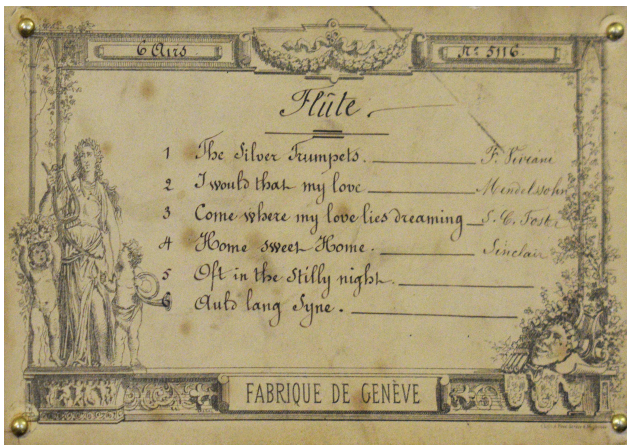 6 Airs Nº 5116.
Flûte.
1 The Silver Trumpets. F. Viviani
2 I would that my love Mendelssohn
3 Come where my love lies dreaming S. C. Foster
4 Home sweet Home. Sinclair
5 Oft in the Stilly night.
6 Auld lang Syne.
FABRIQUE DE GENÈVE